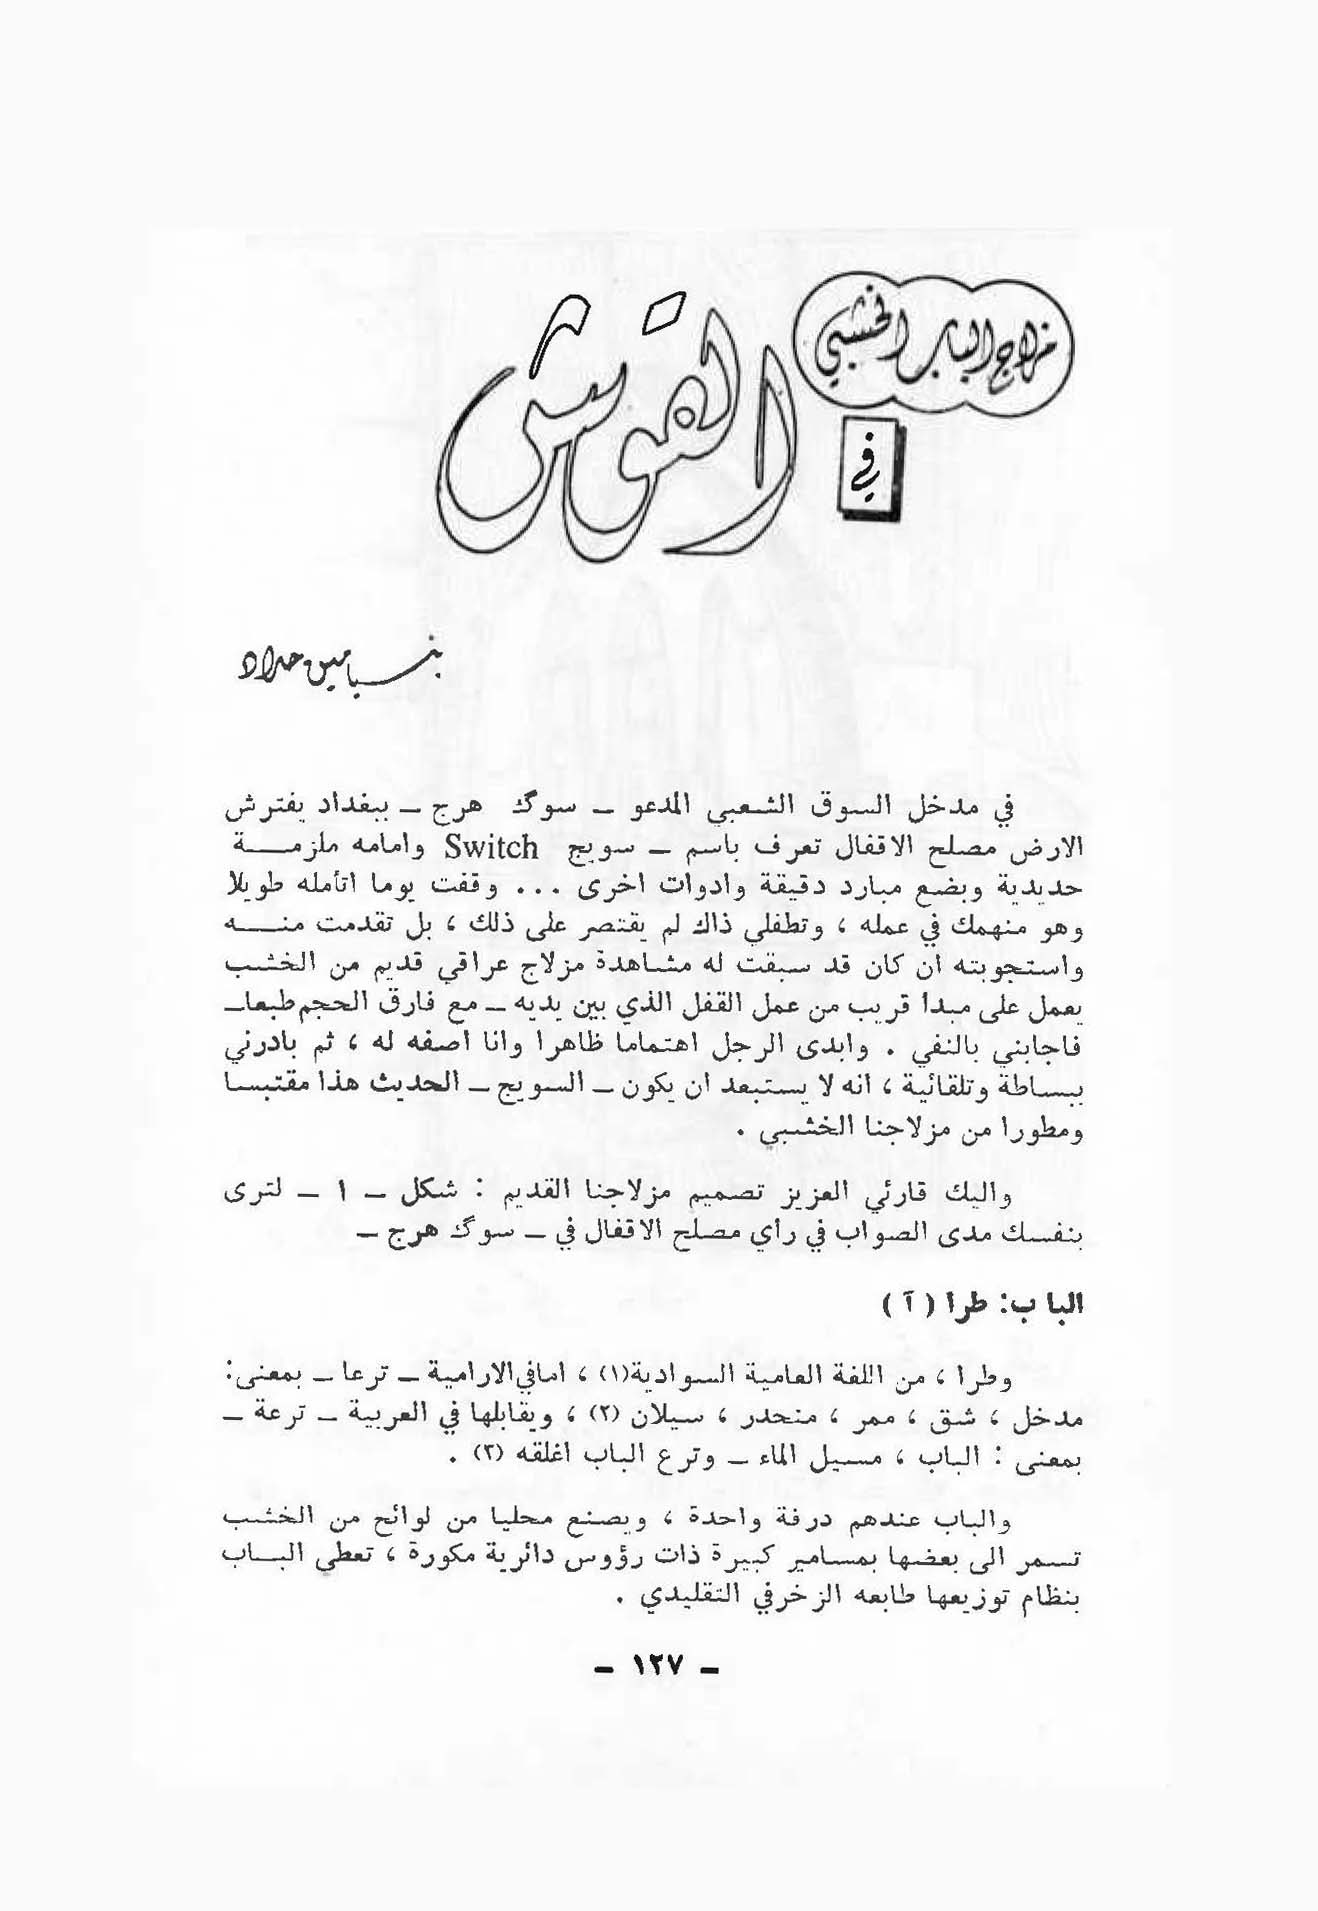 مزلاج الباب الخشبي
في
القوش
بنيامين حداد
في مدخل السوق الشعبي المدعو ــ سوگ هرج ــ ببغداد يفترش
الارض مصلح الاقفال تعرف باسم ــ سويج Switch وامامه ملزمــــة
حديدية وبضع مبارد دقيقة وادوات اخرى ... وقفت يوما اتأمله طويلا
وهو منهمك في عمله ، وتطفلي ذاك لم يقتصر على ذلك ، بل تقدمت منــــه
واستجوبته ان كان قد سبقت له مشاهدة مزلاج عراقي قديم من الخشب
يعمل على مبدأ قريب من عمل القفل الذي بين يديه ــ مع فارق الحجم طبعا ــ
فاجابني بالنفي . وابدى الرجل اهتماما ظاهرا وانا اصفه له ، ثم بادرني
ببساطة وتلقائية ، انه لا يستبعد ان يكون ــ السويج ــ الحديث هذا مقتبسا
ومطورا من مزلاجنا الخشبي .
واليك قارئي العزيز تصميم مزلاجنا القديم : شكل ــ ١ ــ لترى
بنفسك مدى الصواب في رأي مصلح الاقفال في ــ سوگ هرج ــ
البا ب: طرا ( آ )
وطرا ، من اللغة العامية السوادية(١) ، اما في الارامية ــ ترعا ــ بمعنى:
مدخل ، شق ، ممر ، منحدر ، سيلان (٢) ، ويقابلها في العربية ــ ترعة ــ
بمعنى : الباب ، مسيل الماء ــ وترع الباب اغلقه (٣) .
والباب عندهم درفة واحدة ، ويصنع محليا من لوائح من الخشب
تسمر الى بعضها بمسامير كبيرة ذات رؤوس دائرية مكورة ، تعطي البــاب
بنظام توزيعها طابعه الزخرفي التقليدي .
ــ ١٢٧ ــ